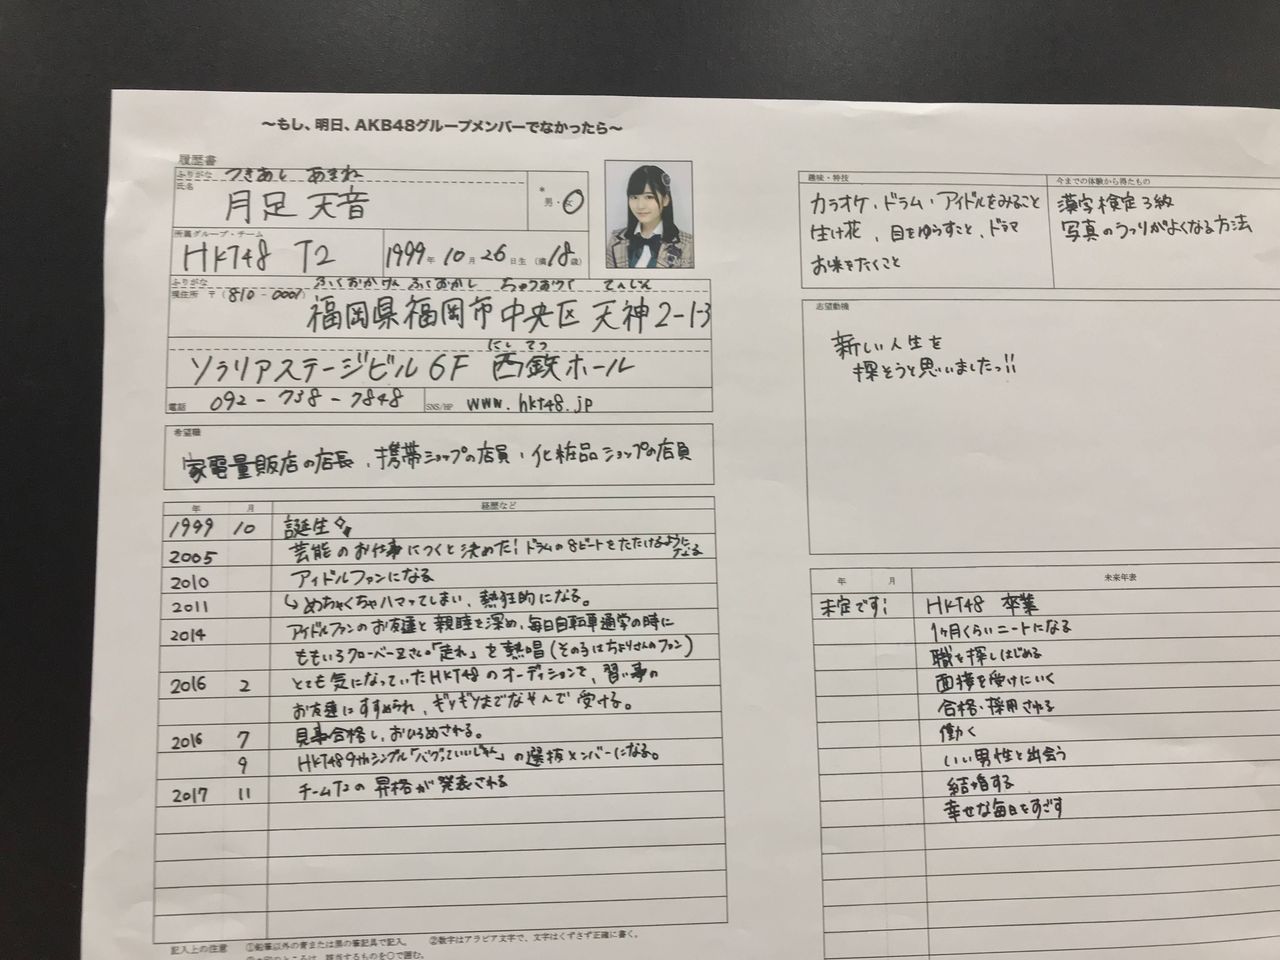 ～もし、明日、AKB48グループメンバーでなかったら～
履歴書
ふりがな つきあし あまね
氏名 月足 天音
* 男・女
所属グループ・チーム
HKT48 T2
1999年 10月 26日生 (満18歳)
ふりがな ふくおかけん ふくおかし ちゅうおうく てんじん
現住所 〒(810-0001)
福岡県福岡市中央区天神2-1-3
にしてつ
ソラリアステージビル6F 西鉄ホール
電話 092-738-7848 SNS/HP www.hkt48.jp
希望職
家電量販店の店長、携帯ショップの店員、化粧品ショップの店員
年 月 経歴など
1999 10 誕生
2005 芸能のお仕事につくと決めた! ドラムの8ビートをたたけるようになる
2010 アイドルファンになる
2011 ↳めちゃくちゃハマってしまい、熱狂的になる。
2014 アイドルファンのお友達と親睦を深め、毎日自転車通学の時に
ももいろクローバーZさんの「走れ」を熱唱(その子はちよりさんのファン)
2016 2 とても気になっていたHKT48のオーディションを、習い事の
お友達にすすめられ、ギリギリまでなやんで受ける。
2016 7 見事合格し、おひろめされる。
9 HKT48 9thシングル「バグっていいじゃん」の選抜メンバーになる。
2017 11 チームT2の昇格が発表される
記入上の注意 ①鉛筆以外の青または黒の筆記具で記入。 ②数字はアラビア文字で、文字はくずさず正確に書く。
③*印のところは、該当するものを○で囲む。
趣味・特技
カラオケ、ドラム・アイドルをみること
生け花、目をゆらすこと、ドラマ
お米をたくこと
今までの体験から得たもの
漢字検定3級
写真のうつりがよくなる方法
志望動機
新しい人生を
探そうと思いましたっ!!
年 月 未来年表
未定です! HKT48 卒業
1ヶ月くらいニートになる
職を探しはじめる
面接を受けにいく
合格・採用される
働く
いい男性と出会う
結婚する
幸せな毎日をすごす